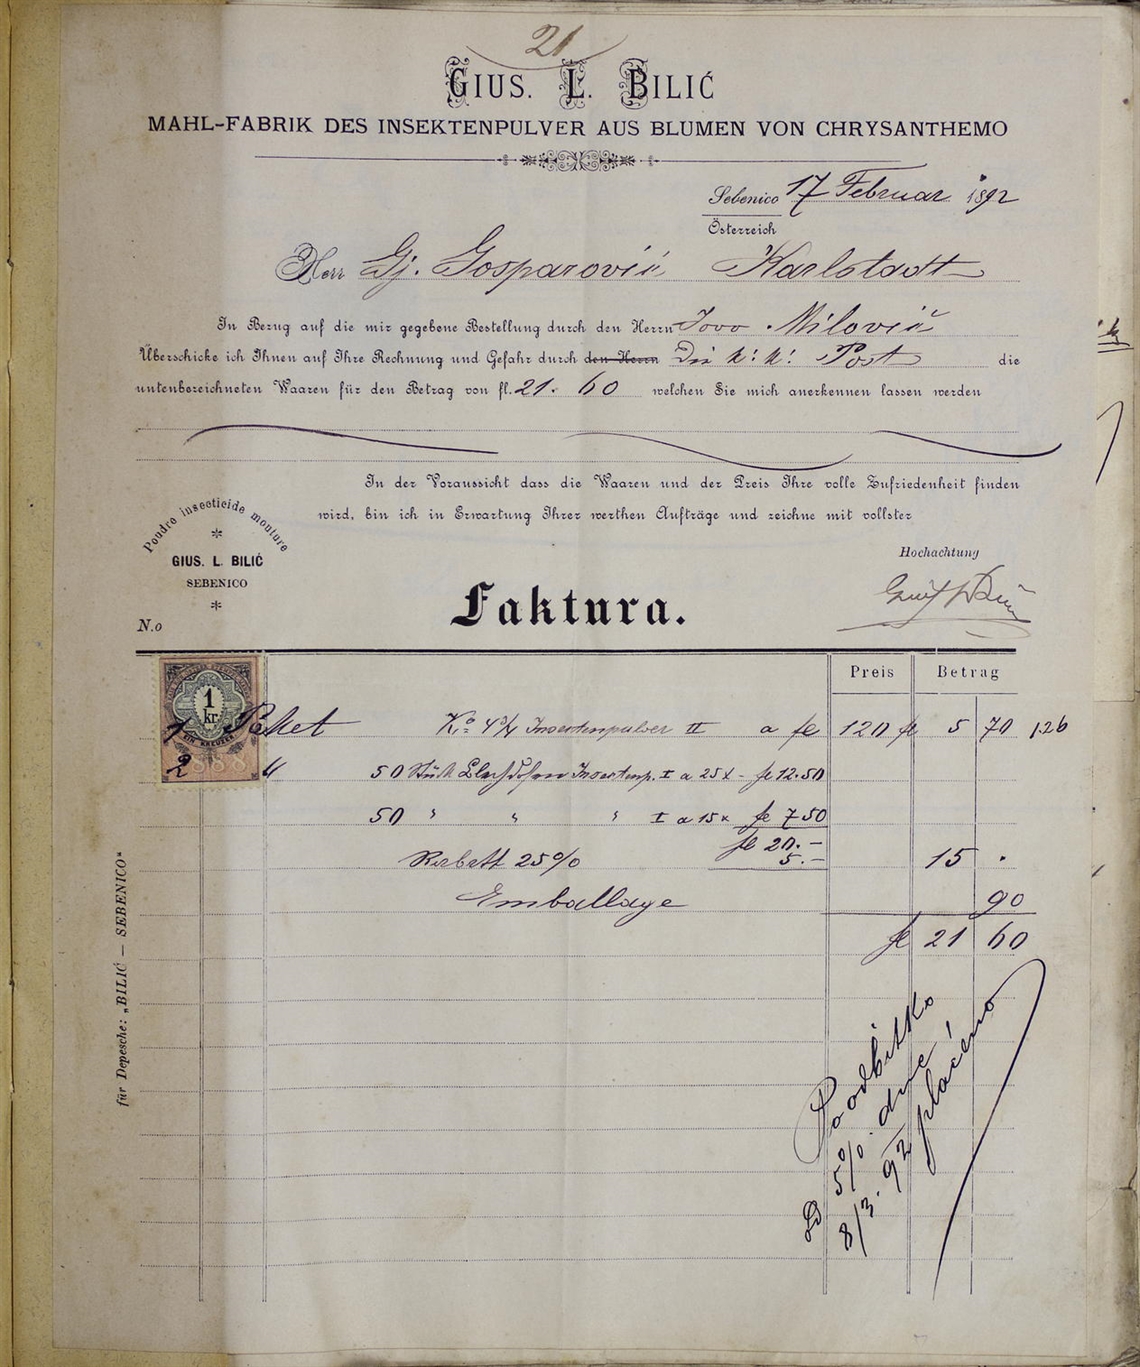 21
GIUS. L. BILIĆ
MAHL-FABRIK DES INSEKTENPULVER AUS BLUMEN VON CHRYSANTHEMO
Sebenico 17 Februar 1892
Österreich
Herr Gj. Gosparović Karlstadt
In Bezug auf die mir gegebene Bestellung durch den Herrn Jovo Milović
Überschicke ich Ihnen auf Ihre Rechnung und Gefahr durch den Herrn Die k: k: Post die
untenbezeichneten Waaren für den Betrag von fl. 21. 60 welchen Sie mich anerkennen lassen werden
In der Voraussicht dass die Waaren und der Preis Ihre volle Zufriedenheit finden
wird, bin ich in Erwartung Ihrer werthen Aufträge und zeichne mit vollster
Hochachtung
Poudre insecticide mouture
GIUS. L. BILIĆ
SEBENICO
N.o
Faktura.
Preis Betrag
1 kr
EIN KREUZER
1888
1 Paket Ko 4¾ Insectenpulver II a fl 120 fl 5 70 126
2 " 50 Stück Blechdosen Insectenp. I a 25 x - fl 12.50
50 " " " I a 15 x fl 7 50
fl 20.-
Rabatt 25% 5.- 15 .
Emballage 90
fl 21 60
Po odbitko
5%. dne
8/3. 92 plaćeno
für Depesche: „BILIĆ — SEBENICO"